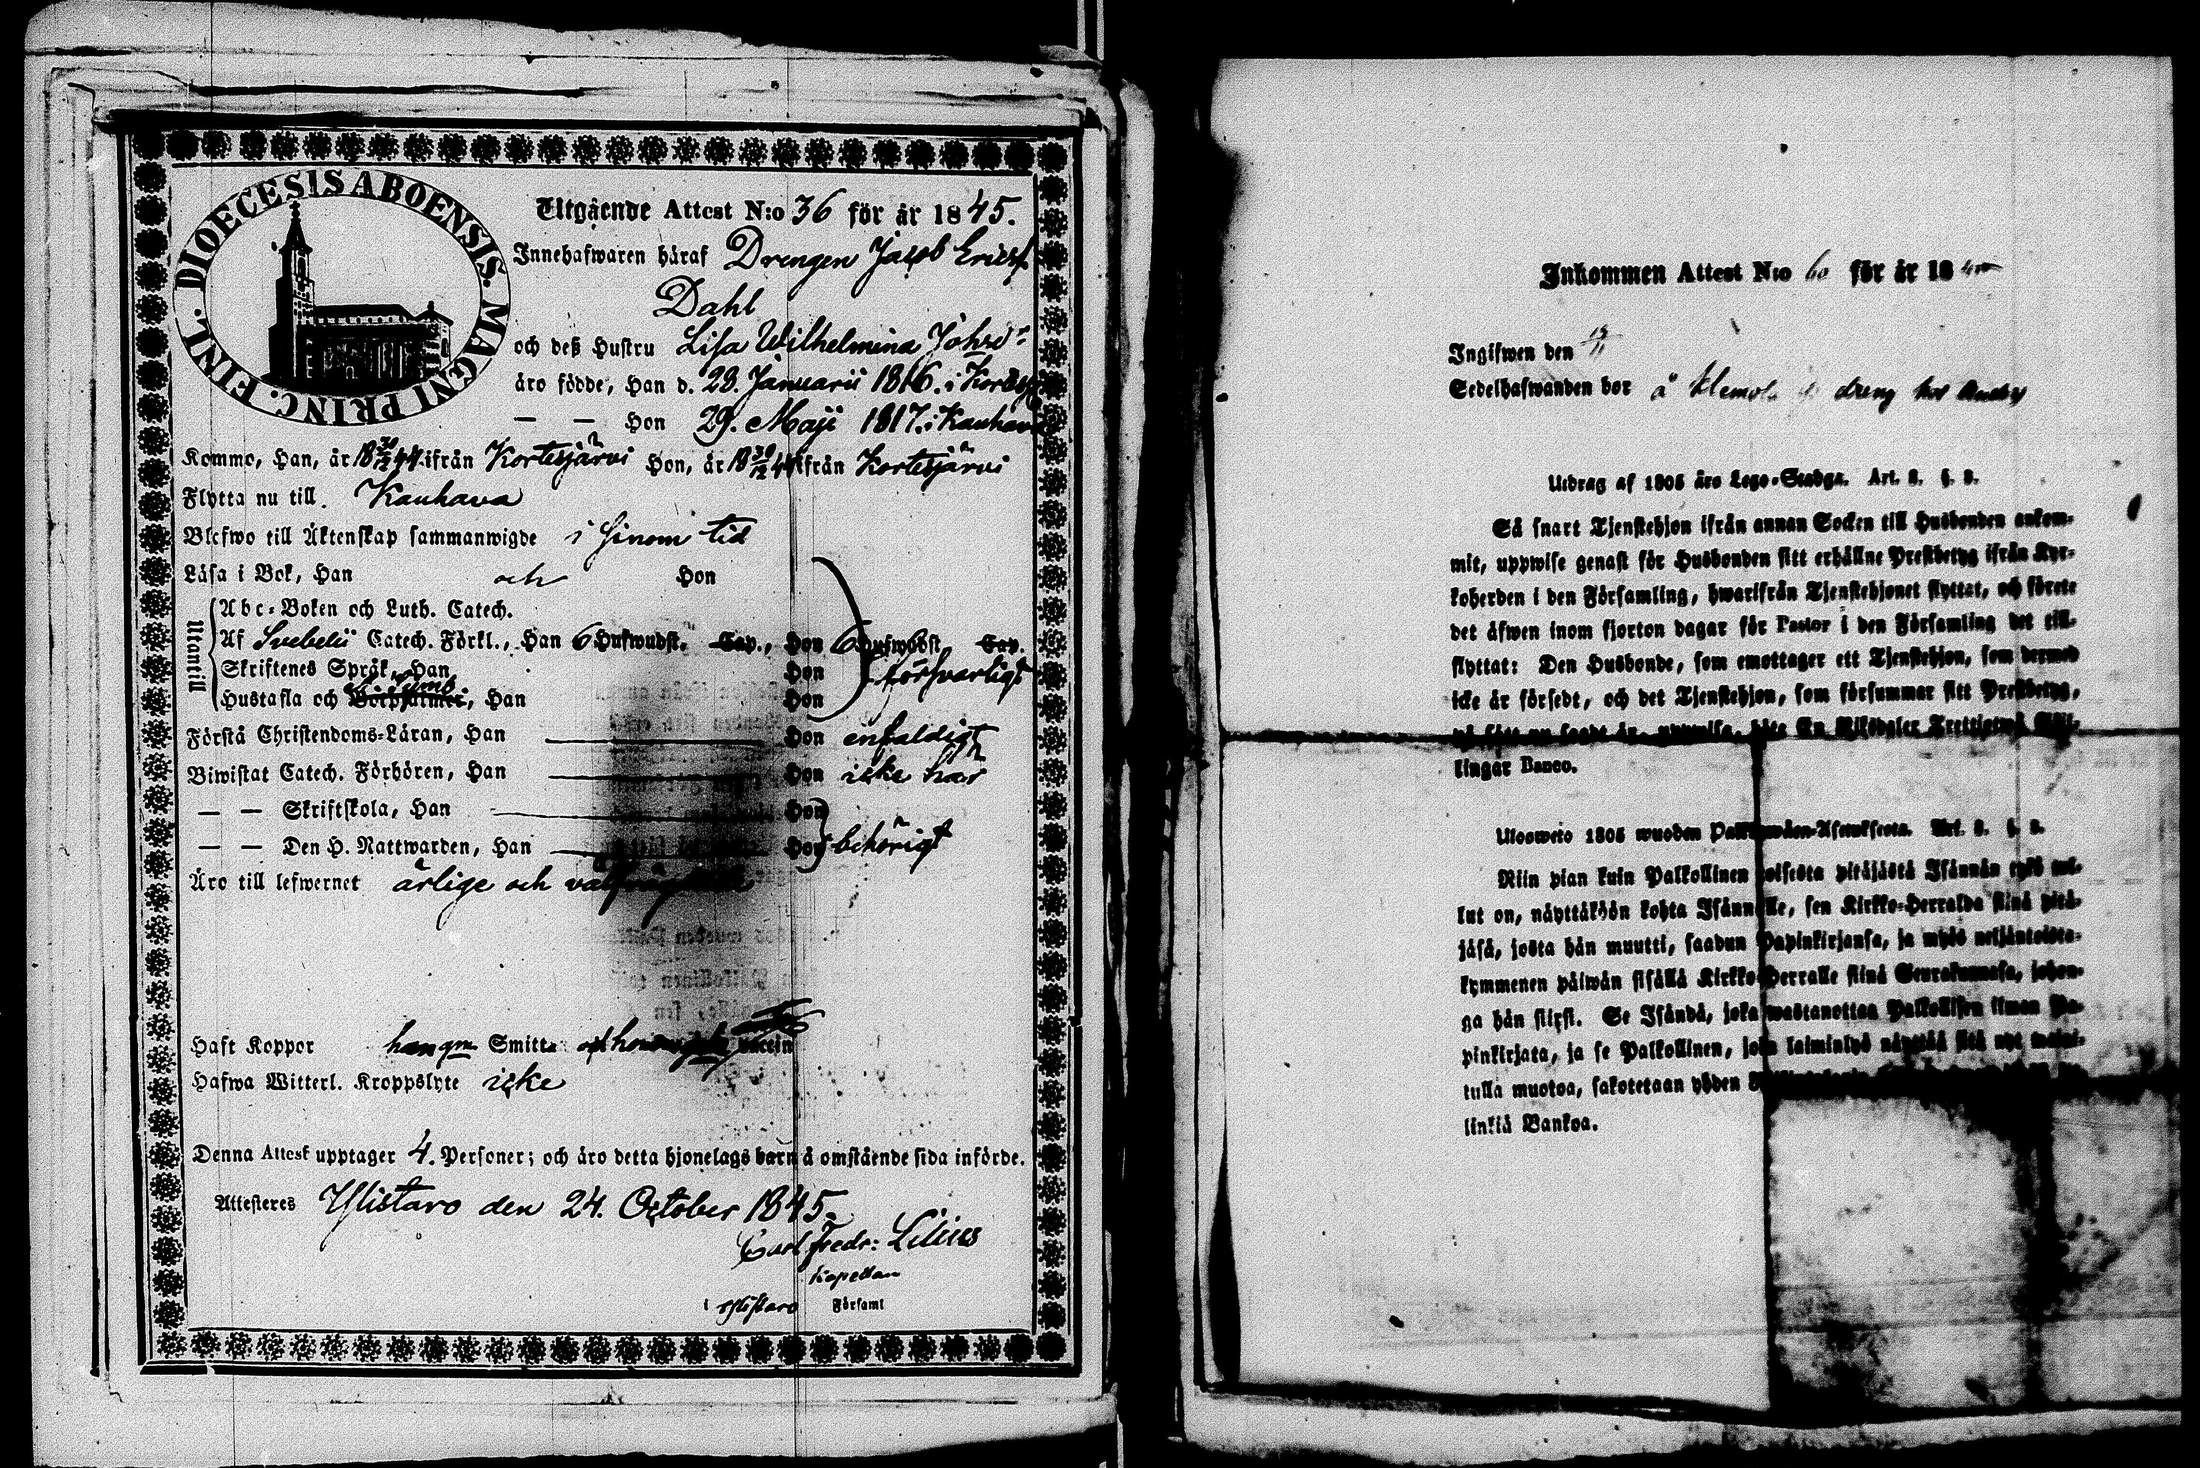 DIOECESIS ABOENSIS. MAGNI PRINC. FINL.
Utgående Attest N:o 36 för år 1845.
Innehafwaren häraf Drengen Jacob Ericsf.
Dahl
och deß Hustru Lisa Wilhelmina Johsd:r
äro födde, Han d. 28. Januarii 1816. i Kortesj
— — Hon 29. Maji 1817. i Kauhava
Kommo, Han, år 18 30/12 44. ifrån Kortesjärvi Hon, år 18 30/12 44 ifrån Kortesjärvi
Flytta nu till. Kauhava
Blefwo till Äktenskap sammanwigde i sinom tid
Läsa i Bok, Han och Hon
Utantill
Abc-Boken och Luth. Catech.
Af Svebelii Catech. Förkl., Han 6 Hufwudst. Cap., Hon 6 Hufwudst Cap.
Skriftenes Språk, Han Hon försvarligt
Hustafla och Symb. Botpsalmer, Han Hon
Förstå Christendoms-Läran, Han — Hon enfaldigt
Biwistat Catech. Förhören, Han — Hon icke här
— — Skriftskola, Han — Hon
— — Den H. Nattwarden, Han — Hon behörigt
Äro till lefwernet ärlige och
Haft Koppor han gm Smitta och hon Vaccin
Hafwa Witterl. Kroppslyte icke
Denna Attest upptager 4. Personer; och äro detta hjonelags barn å omstående sida införde.
Attesteres Ylistaro den 24. October 1845.
Carl Fredr: Lilius
Kapellan
i Ylistaro Församl
Inkommen Attest N:o 60 för år 1845
Ingifwen den 15/11
Sedelhafwanden bor å Klemola dreng hos
Utdrag af 1805 års Lego-Stadga. Art. 2. §. 2.
Så snart Tjenstehjon ifrån annan Socken till Husbonden ankom-
mit, uppwise genast för Husbonden sitt erhållne Prestbetyg ifrån Kyr-
koherden i den Församling, hwarifrån Tjenstehjonet flyttat, och förete
det äfwen inom fjorton dagar för Pastor i den Församling det till-
flyttat: Den Husbonde, som emottager ett Tjenstehjon, som dermed
icke är försedt, och det Tjenstehjon, som försummar sitt Prestbetyg,
på sätt nu sagdt är, uppwisa, böte En Riksdaler Trettiotwå Skil-
lingar Banco.
Ulosweto 1805 wuoden Palkkawäen-Asetuksesta. Art. 2. §. 2.
Niin pian kuin Palkollinen toisesta pitäjästä Isännän tykö tul-
lut on, näyttäköön kohta Isännälle, sen Kirkko-Herralda siinä pitä-
jäsä, josta hän muutti, saadun Papinkirjansa, ja myös neljäntoista-
kymmenen päiwän sisällä Kirkko-Herralle siinä Seurakunnasa, johon-
ga hän siirsi. Se Isändä, joka wastanottaa Palkollisen ilman Pa-
pinkirjata, ja se Palkollinen, joka laiminlyö näyttää sitä nyt maini-
tulla muotoa, sakotetaan yhden
linkiä Bankoa.